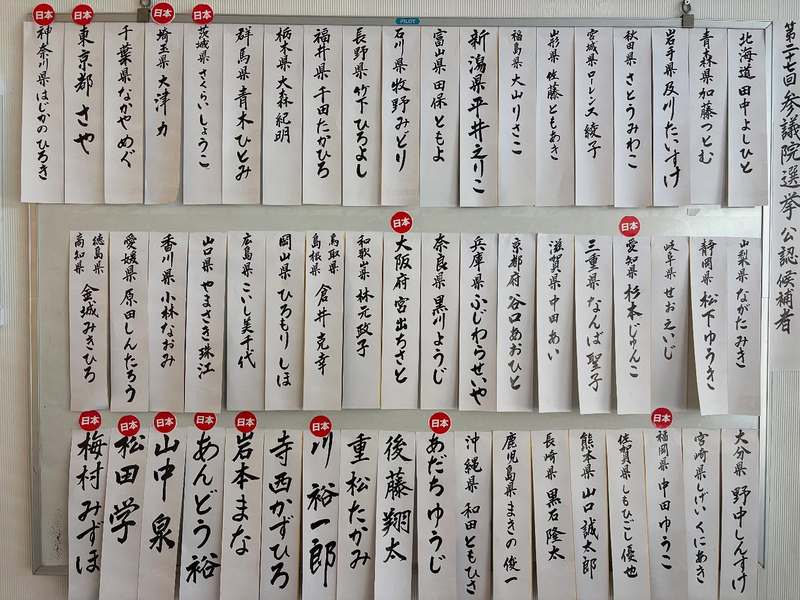 第二十七回 参議院選挙 公認候補者
PILOT
北海道 田中よしひと
青森県 加藤つとむ
岩手県 及川たいすけ
秋田県 さとうみわこ
宮城県 ローレンス綾子
山形県 佐藤ともあき
福島県 大山りさこ
新潟県 平井えりこ
富山県 田保ともよ
石川県 牧野みどり
長野県 竹下ひろよし
福井県 千田たかひろ
栃木県 大森紀明
群馬県 青木ひとみ
日本
茨城県 さくらいしょうこ
日本
埼玉県 大津力
千葉県 なかやめぐ
日本
東京都 さや
日本
神奈川県 はじかのひろき
山梨県 ながたみき
静岡県 松下ゆうき
岐阜県 せおえいじ
日本
愛知県 杉本じゅんこ
三重県 なんば聖子
滋賀県 中田あい
京都府 谷口あおひと
兵庫県 ふじわらせいや
奈良県 黒川ようじ
日本
大阪府 宮出ちさと
和歌山県 林元政子
鳥取県 島根県 倉井克幸
岡山県 ひろもりしほ
広島県 こいし美千代
山口県 やまさき珠江
香川県 小林なおみ
愛媛県 原田しんたろう
徳島県 高知県 金城みきひろ
大分県 野中しんすけ
宮崎県 しげいくにあき
日本
福岡県 中田ゆうこ
佐賀県 しもひごし優也
熊本県 山口誠太郎
長崎県 黒石隆太
鹿児島県 まきの俊一
沖縄県 和田ともひさ
日本
あだちゆうじ
後藤翔太
重松たかみ
日本
川裕一郎
寺西かずひろ
日本
岩本まな
日本
あんどう裕
日本
山中泉
日本
松田学
日本
梅村みずほ